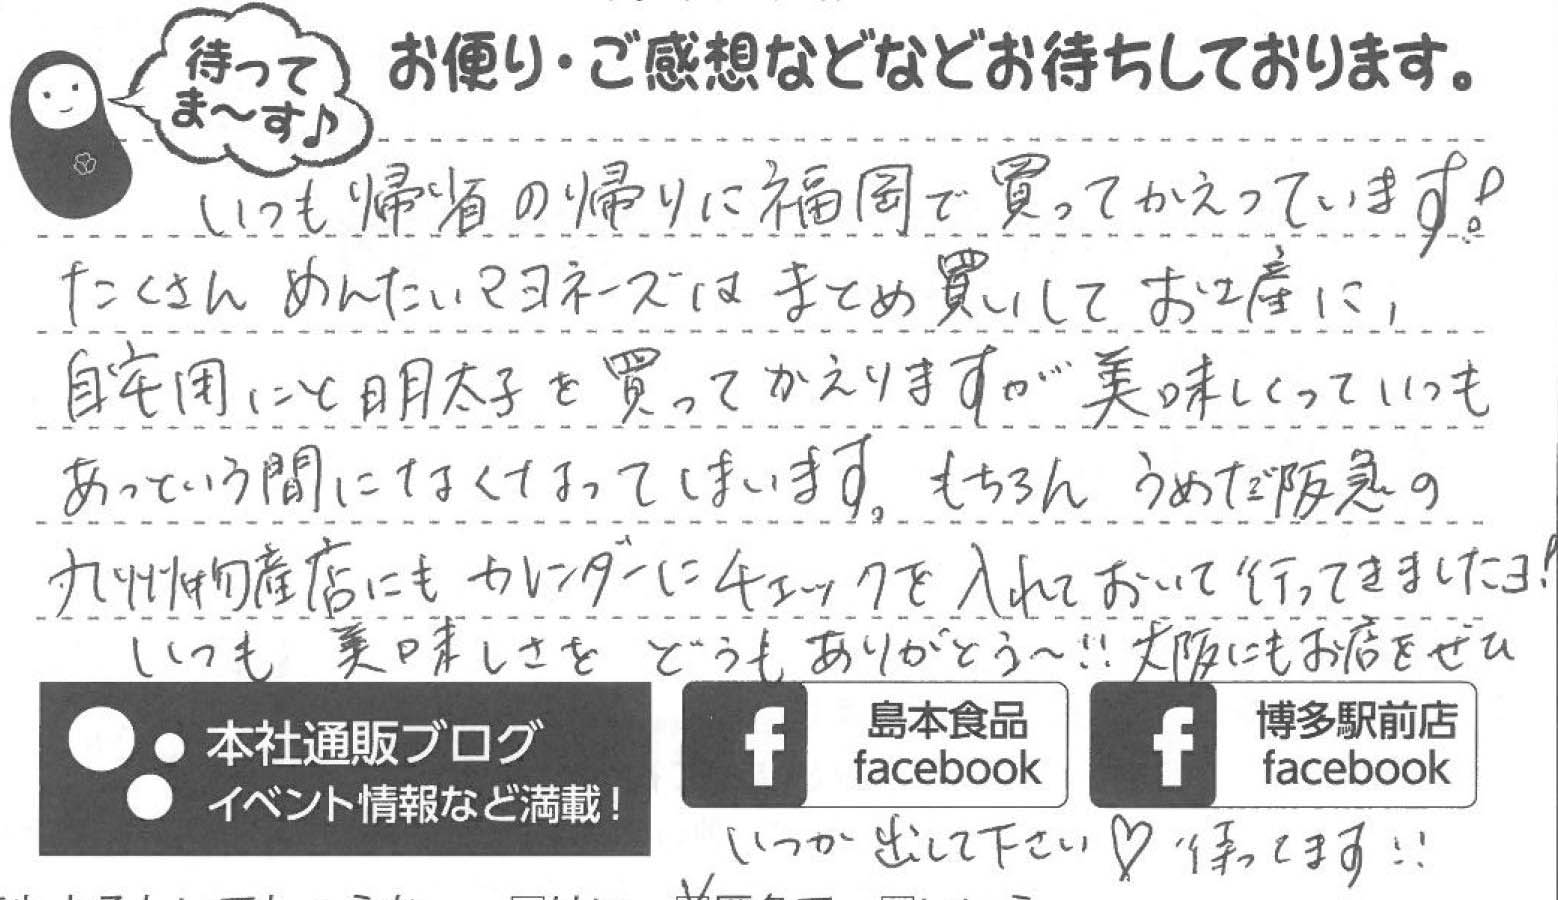 待って
ま〜す♪
お便り・ご感想などなどお待ちしております。
いつも帰省の帰りに福岡で買ってかえっています!
たくさん めんたいマヨネーズは まとめ買いしてお土産に,
自宅用にと明太子を買ってかえりますが美味しくっていつも
あっという間になくなってしまいます。もちろん うめだ阪急の
九州物産店にもカレンダーにチェックを入れておいて行ってきましたヨ!
いつも 美味しさを どうも ありがとう〜!! 大阪にもお店をぜひ
本社通販ブログ
イベント情報など満載!
島本食品
facebook
博多駅前店
facebook
いつか 出して下さい♡ 待ってます!!